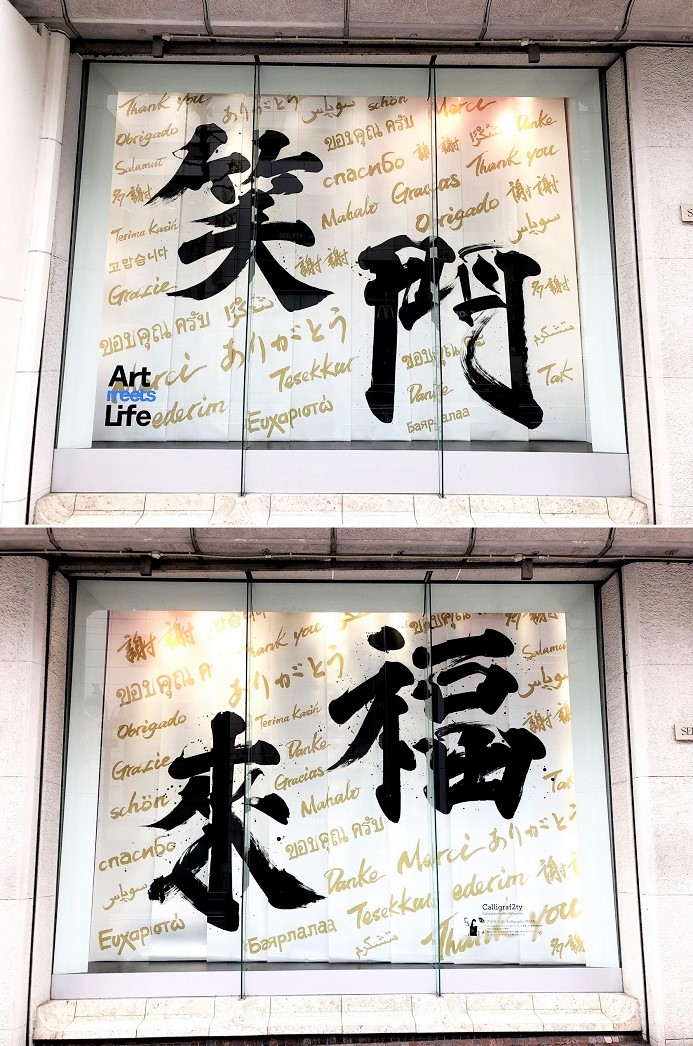 Thank you ありがとう سوپاس schön Merci
Obrigado ขอบคุณ ครับ Danke
Salamat спасибо 謝謝 Thank you
多謝 Mahalo Gracias 謝謝
Terima Kasih Obrigado
고맙습니다 謝謝 سوپاس
Grazie متشکرم 多謝
笑門
ขอบคุณ ครับ ありがとう متشکرم
Merci Tesekkur ขอบคุณ Tak
Art
meets
Life
ederim Ευχαριστώ Danke
Баярлалаа
謝謝 Thank you ขอบคุณ 多謝
ขอบคุณ ค ありがとう Salamat
Obrigado Terima Kasih سوپاس
Grazie Danke 謝謝
schön Gracias
Mahalo Tak
来福
спасибо ขอบคุณ ครับ
سوپاس Danke Merci ありがとう
Tesekkur ederim 謝謝
Ευχαριστώ Баярлалаа متشکرم Thank you
多謝
Calligraf2ty